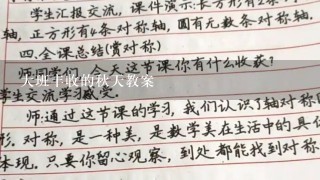 学生汇报交流,课件演示:长方形有2条
轴,正方形有4条对称轴,圆有无数条对称轴.
四.全课总结(赏对称)
大班丰收的秋天教案
学生交流学习
师:通过这节课的学习,我们认识了轴对称
形.对称,是一种美,是数学美在生活中的具
体现.只要你留心观察,到处都能找到对称